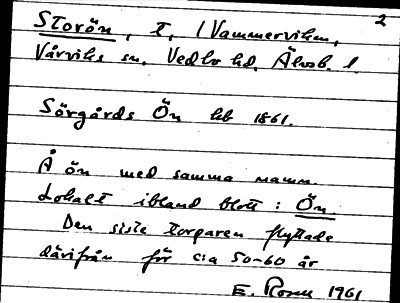 2
Storön, t, i Vammerviken,
Vårviks sn, Vedbo hd, Älvsb. l.
Sörgårds Ön hb 1861.
Å ön med samma namn.
Lokalt ibland blott: Ön.
Den siste torparen flyttade
därifrån för c:a 50-60 år
E. 1961